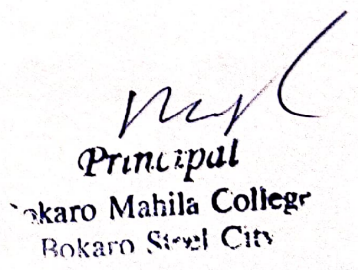 Principal
Bokaro Mahila College
Bokaro Steel City